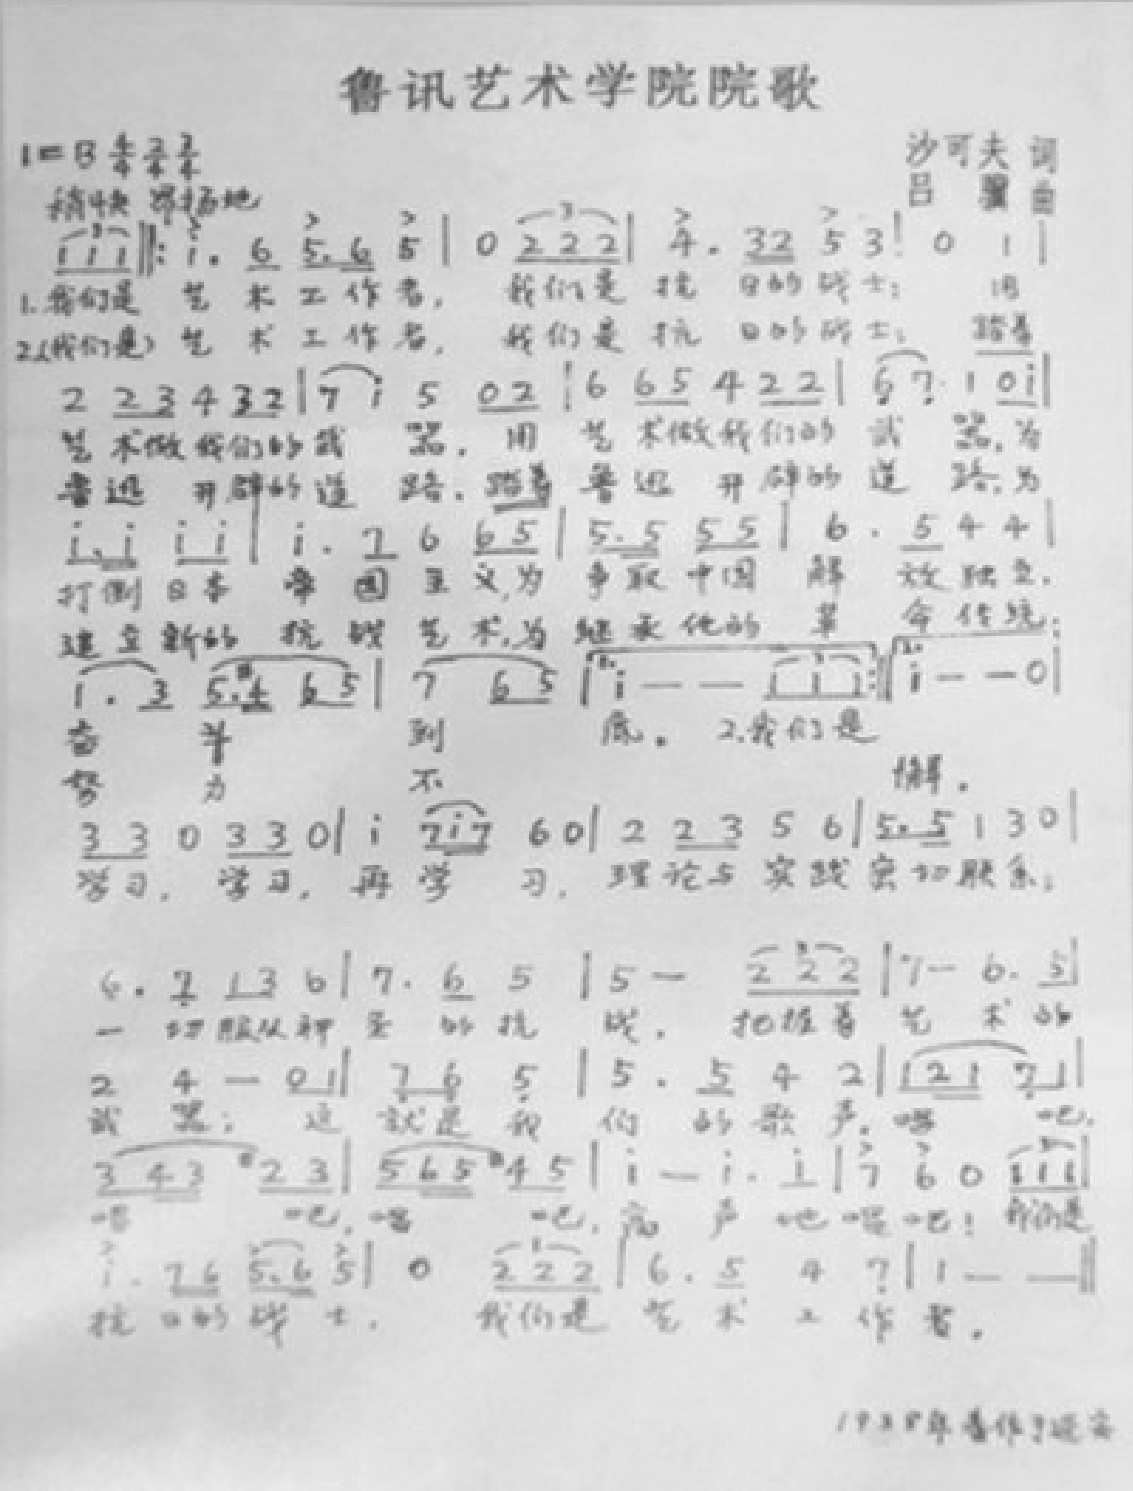 鲁讯艺术学院院歌
1=B 4/4 2/4 3/4
沙可夫 词
稍快 昂扬地
吕 骥 曲
1 1 1 ‖: i. 6 5. 6 5 | 0 2 2 2 | 4. 32 5 3 | 0 1 |
1.我们是 艺 术 工 作 者, 我们是 抗 日的战士; 用
2.(我们是) 艺 术 工 作 者, 我们是 抗 日的战士; 踏着
2 2 3 4 3 2 | 7 i 5 0 2 | 6 6 5 4 2 2 | 6 7. 1 0 i |
艺 术做我们的武 器, 用 艺 术做我们的 武 器,为
鲁迅 开辟的道 路, 踏着 鲁迅 开辟的道 路,为
i. i i i | i. 7 6 6 5 | 5. 5 5 5 | 6. 5 4 4 |
打倒日本 帝国主义,为 争取中国 解 放独立,
建立新的 抗战艺术,为 继承他的 革 命传统;
1. 3 5. #4 6 5 | 7 6 5 | 1. i — — 1 1 1 :‖ 2. i — — 0 |
奋 斗 到 底。 2.我们是
努 力 不 懈。
3 3 0 3 3 0 | i 7 i 7 6 0 | 2 2 3 5 6 | 5. 5 1 3 0 |
学习, 学习, 再 学 习, 理论与 实践密切联系;
6. 7 1 3 6 | 7. 6 5 | 5 — 2 2 2 | 7 — 6. 5 |
一 切服从神圣 的抗 战, 把握着 艺 术 的
2 4 — 0 1 | 7 6 5 | 5. 5 4 2 | 1 2 1 7 1 |
武 器; 这 就是我 们 的歌声, 唱 吧,
3 4 3 #2 3 | 5 6 5 #4 5 | i — i. i | 7 6 0 1 1 1 |
唱 吧, 唱 吧, 高 声 地唱吧! 我们是
i. 7 6 5. 6 5 | 0 2 2 2 | 6. 5 4 7 | 1 — — ‖
抗 日的战 士, 我们是 艺 术 工 作 者。
1938年 作于延安